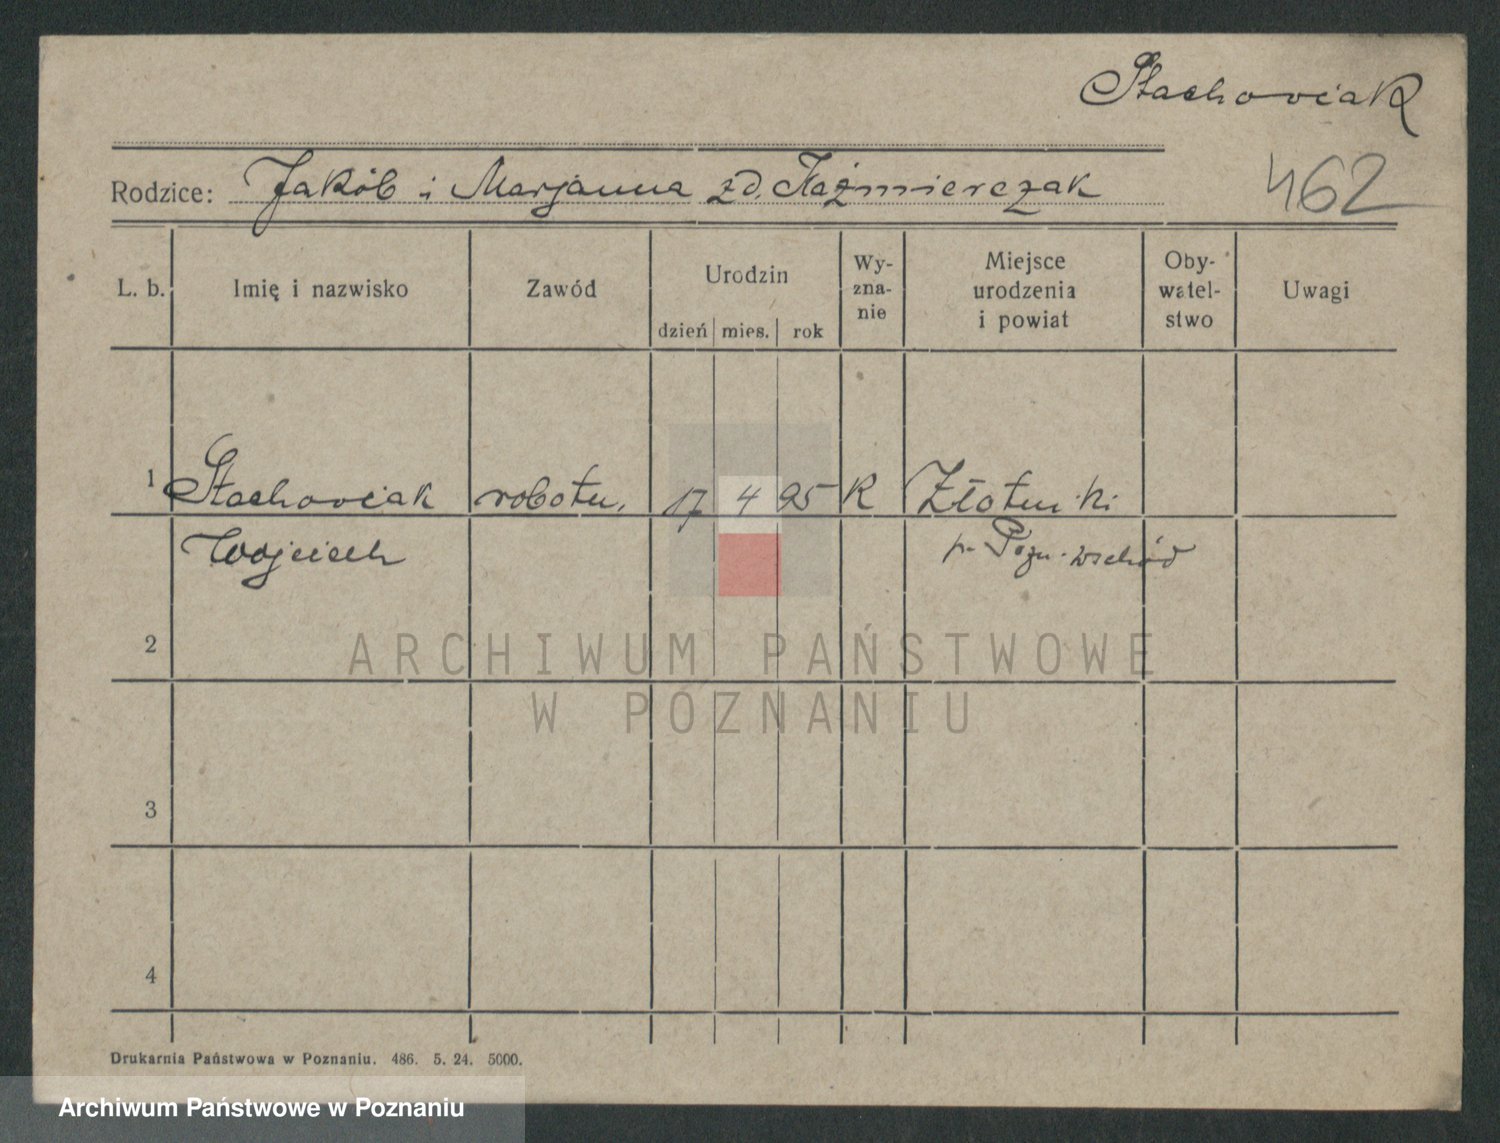 Stachowiak
Rodzice: Jakób i Marjanna zd. Kaźmierczak
462
L. b. Imię i nazwisko Zawód Urodzin dzień mies. rok Wy-zna-nie Miejsce urodzenia i powiat Oby-watel-stwo Uwagi
1 Stachowiak robotn. 17 4 95 K Złotniki
Wojciech p. Pozn. wschód
2
3
4
Drukarnia Państwowa w Poznaniu. 486. 5. 24. 5000.
ARCHIWUM PAŃSTWOWE
W POZNANIU
Archiwum Państwowe w Poznaniu